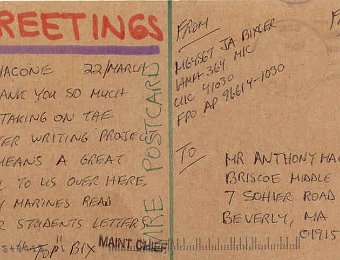 REETINGS
ACONE 22/MARCH
ANK YOU SO MUCH
TAKING ON THE
ER WRITING PROJEC
MEANS A GREAT
TO US OVER HERE,
MARINES READ
STUDENTS LETTERS
"TOP" BIX
MAINT CHIEF
MRE POSTCARD
FROM
MGYSGT JA BIXLER
HMH 364 MIC
UIC 41030
FPO AP 96614-1030
TO
MR ANTHONY MAC
BRISCOE MIDDLE
7 SOHIER ROAD
BEVERLY, MA
01915